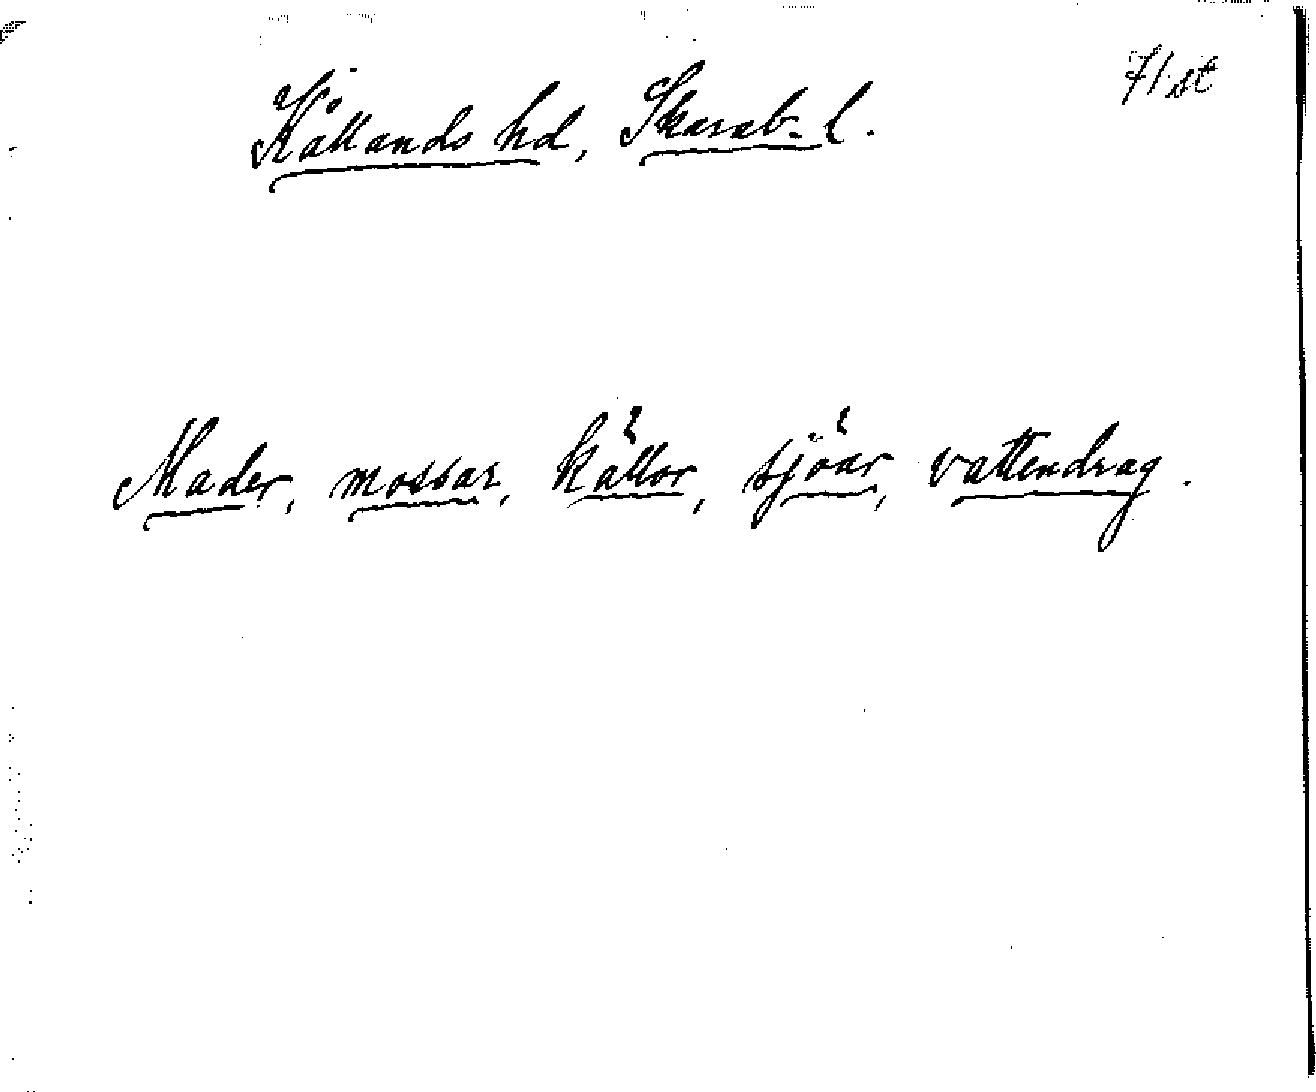 Kållands hd, Skarab. l.
71 st
Mader, mossar, källor, sjöar, vattendrag.